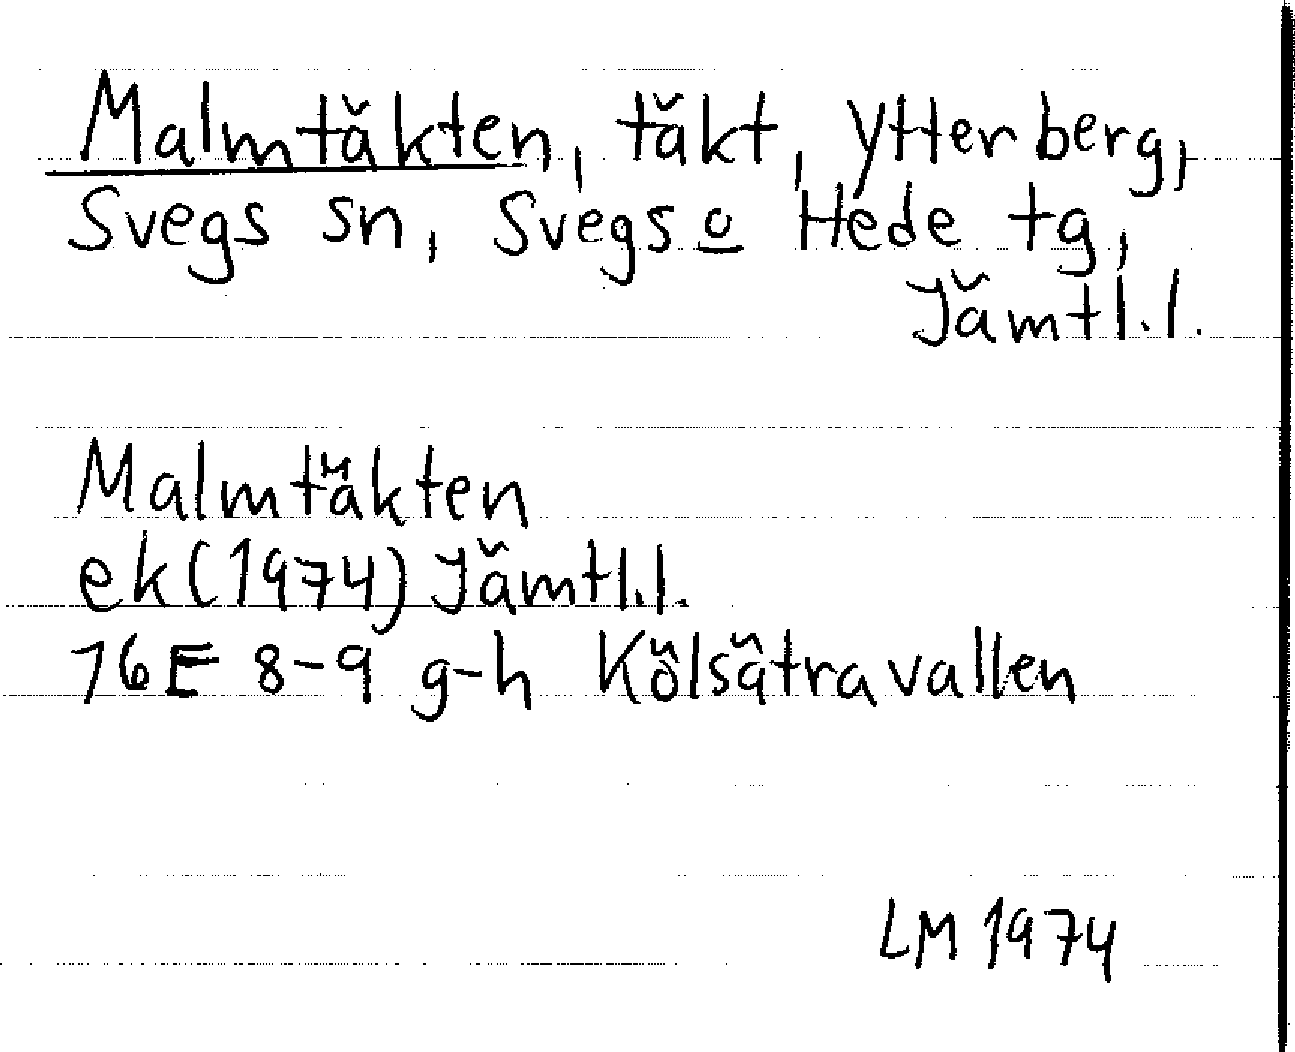 Malmtäkten, täkt, Ytterberg,
Svegs sn, Svegs o Hede tg,
Jämtl.l.
Malmtäkten
ek(1974) Jämtl.l.
16E 8-9 g-h Kölsätravallen
LM 1974